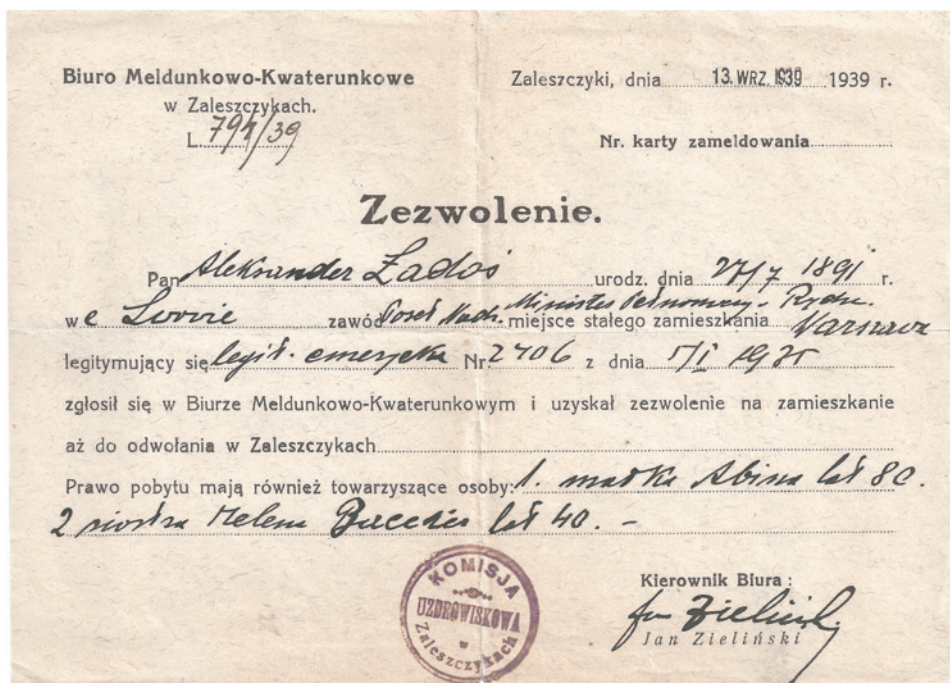 Biuro Meldunkowo-Kwaterunkowe
w Zaleszczykach.
L. 791/39
Zaleszczyki, dnia 13. WRZ. 1939 1939 r.
Nr. karty zameldowania
Zezwolenie.
Pan Aleksander Ładoś urodz. dnia 27/7 1891 r.
w e Lwowie zawód Poseł Nadz. Minister Pełnomocny miejsce stałego zamieszkania Warszawa
legitymujący się legit. emerycka Nr. 2706 z dnia 1/I 1935
zgłosił się w Biurze Meldunkowo-Kwaterunkowym i uzyskał zezwolenie na zamieszkanie
aż do odwołania w Zaleszczykach
Prawo pobytu mają również towarzyszące osoby: 1. matka Abina lat 80.
2 siostra Helena lat 40. -
KOMISJA UZDROWISKOWA w Zaleszczykach
Kierownik Biura:
Jan Zieliński
Jan Zieliński